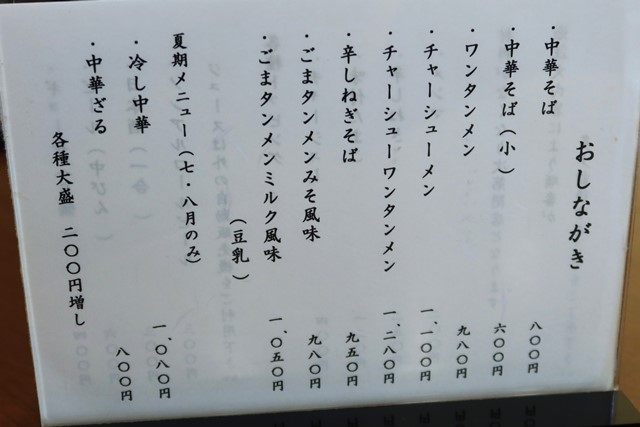 おしながき
・中華そば 八〇〇円
・中華そば(小) 六〇〇円
・ワンタンメン 九八〇円
・チャーシューメン 一、一〇〇円
・チャーシューワンタンメン 一、二八〇円
・辛しねぎそば 九五〇円
・ごまタンメンみそ風味 九八〇円
・ごまタンメンミルク風味 一、〇五〇円
(豆乳)
夏期メニュー(七・八月のみ)
・冷し中華 一、〇八〇円
・中華ざる 八〇〇円
各種大盛 二〇〇円増し